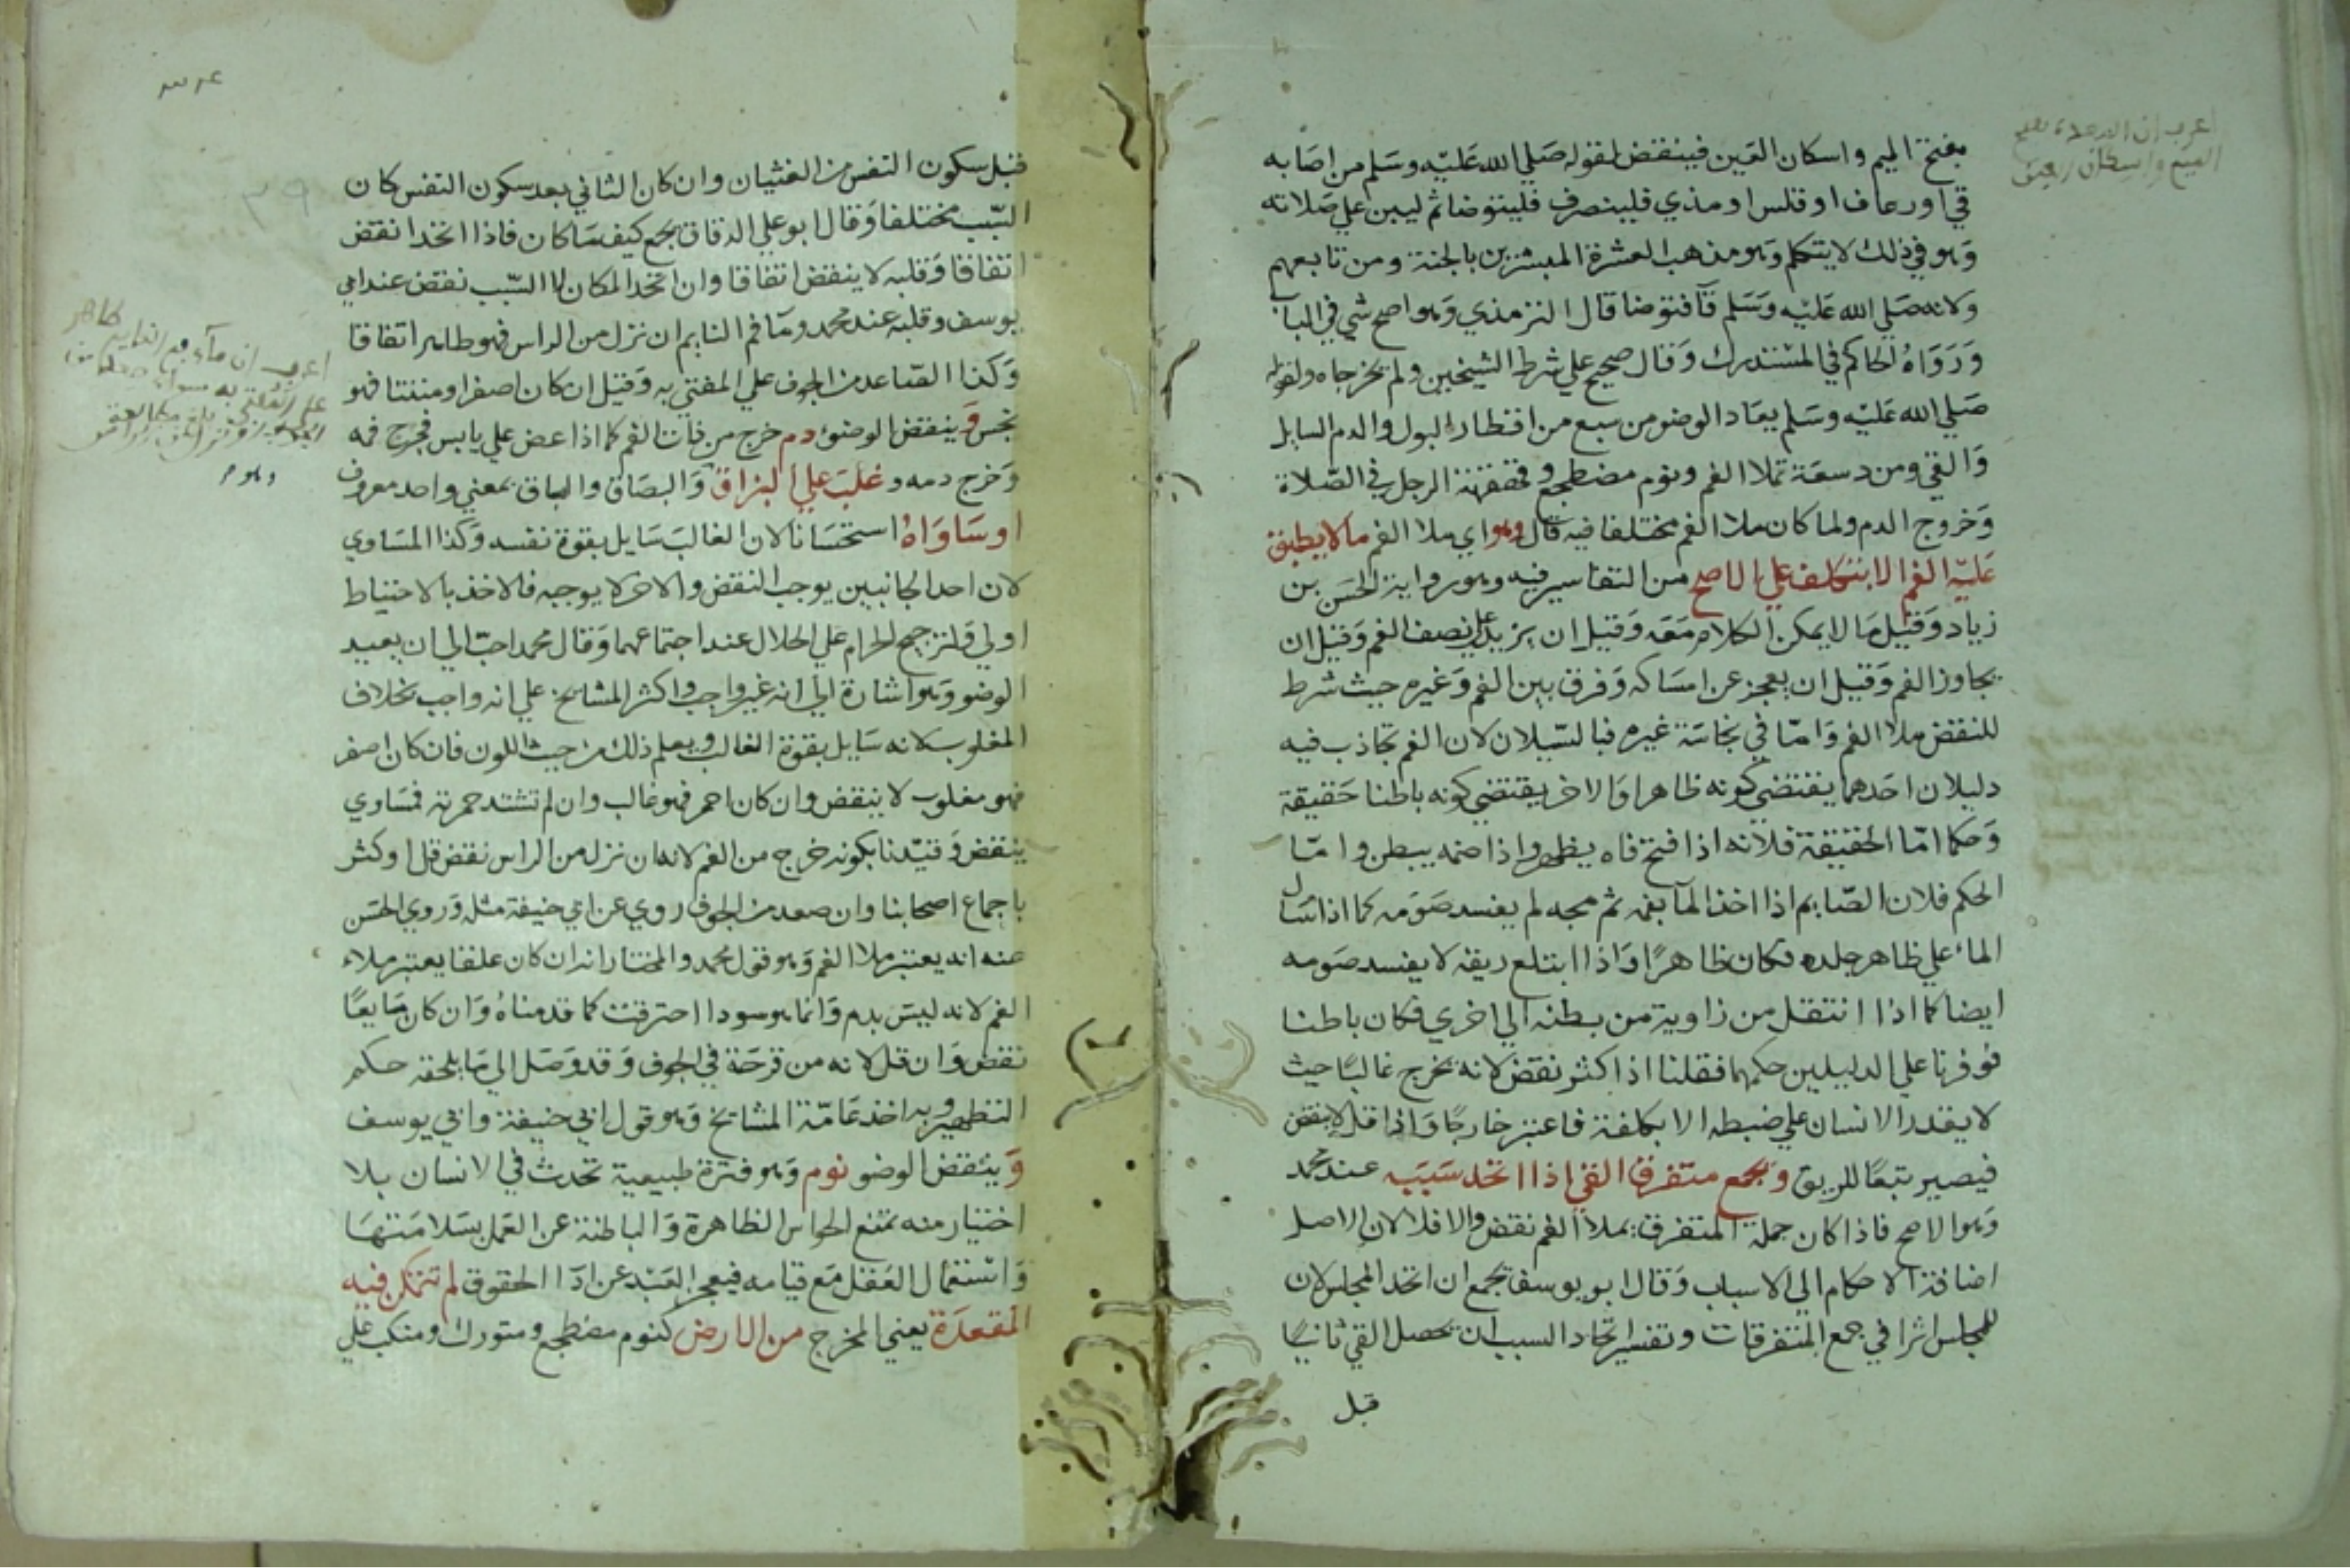 بفتح الميم واسكان العين فينقض لقوله صَلي الله عَليْه وسَلم من اصَابه
قي اورعاف اوقلس اومذي فلينصرف فليتوضا ثم ليبن علي صَلاته
وَهو في ذلك لا يتكلم وَهو مذهب العشرة المبشرين بالجنة ومن تابعهم
وَلانه صَلي الله عَليْه وَسَلم قآ فتوضا قال الترمذي وَهو اصح شي في البا
وَرَوَاهُ الحاكم في المسْتدرك وَقال صحيح علي شرط الشيخين ولم يخرجاه ولقوله
صَلي الله عَليْه وسَلم يعَاد الوضو من سبع من اقطار البول والدم السايل
وَالقي ومن دسعَة تملا الفم ونوم مضطجع وقهقهة الرجل في الصّلاة
وَخروج الدم ولما كان ملا الفم مختلفا فيه قال وهو اي ملا الفم ما لا يطبق
عَليْه الفم الا بتكلف علي الاصح من التفاسير فيه وهو رواية الحسَن بن
زياد وَقيل مَا لا يمكن الكلام مَعَه وَقيل ان يزيد علي نصف الفم وَقيل ان
يجاوز الفم وَقيل ان يعجز عن امسَاكه وَفرق بين الفم وَغيره حيث شرط
للنقض ملا الفم وَامّا في نجَاسَة غيره فبالسّيلان لان الفم تجاذب فيه
دليلان احَدهما يقتضي كونه ظاهرا وَالاخر يقتضي كونه باطنا حَقيقة
وَحكما امّا الحقيقة فلانه اذا فتح فاه يظهر واذا ضمه يبطن وامّا
الحكم فلان الصّايم اذا اخذ المآ بفمه ثم مجه لم يفسد صَوَمه كما اذا سَال
الماء علي ظاهر جلده فكان ظاهرًا وَاذا ابتلع ريقه لا يفسد صَومه
ايضا كما اذا انتقل من زاوية من بطنه الي اخري فكان باطنا
فوفرنا علي الدليلين حكمهما فقلنا اذا كثر نقض لانه يخرج غالبًا حيث
لا يقدر الانسان علي ضبطه الا بكلفة فاعتبر خارجًا وَاذا قل لا ينقض
فيصير تبعًا للريق وَيجمع متفرق القي اذا اتحد سَبَبه عند محمد
وَهو الاصح فاذا كان جملة المتفرق يملا الفم نقض والا فلا لان الاصل
اضافة الاحكام الي الاسباب وَقال ابو يوسف يجمع ان اتحد المجلس لان
للمجلس اثرا في جمع المتفرقات وتفسير اتحاد السبب ان يحصل القي ثانيًا
قبل
قبل سكون النفس من الغثيان وان كان الثاني بعد سكون النفس كان
السّبب مختلفا وَقال ابو علي الدقاق يجمع كيف مَا كان فاذا اتحدا نقض
اتفاقا وَقلبه لا ينقض اتفاقا وان اتحد المكان لا السّبب نقض عند ابي
يوسف وقلبه عند محمد ومَا فم النايم ان نزل من الراس فهو طاهر اتفاقا
وَكذا الصّاعد من الجوف علي المفتي به وَقيل ان كان اصفر او منتنا فهو
نجس وَينقض الوضوء دم خرج من ذات الفم كما اذا عض علي يابس فجرح فمه
وَخرج دمه وغلبَ علي البزاق وَالبصَاق والبساق بمعني واحد معروف
اوسَاوَاهُ استحسَانا لان الغالبَ سَايل بقوة نفسه وَكذا المسَاوي
لان احد الجانبين يوجب النقض والاخر لا يوجبه فالاخذ بالاحتياط
اولي وَلترجيح الحرام علي الحلال عند اجتماعهما وَقال محمد احبّ الي ان يعيد
الوضو وَهو اشارة الي انه غير واجب واكثر المشايخ علي انه واجب بخلاف
المغلوب لانه سَايل بقوة الغالب ويعلم ذلك من حيث اللون فان كان اصفر
فهو مغلوب لا ينقض وان كان احمر فهو غالب وان لم تشتد حمرته فمسَاوي
ينقض وَقيّدنا بكونه خرج من الفم لانه ان نزل من الراس نقض قل اوكثر
باجماع اصحابنا وان صعد من الجوف روي عن ابي حنيفة مثله وَروي الحسَن
عنه انه يعتبر ملا الفم وَهو قول محمد والمختار انه ان كان علقا يعتبر ملاء
الفم لانه ليسَ بدم وَانما هو سودا احترقت كما قدمناهُ وَان كان مَايعًا
نقض وَان قل لانه من قرحَة في الجوف وَقد وَصَل الي مَا يلحقه حكم
التطهير وبه اخذ عَامّة المشايخ وَهو قول ابي حنيفة وابي يوسف
وَينقض الوضو نوم وَهو فترة طبيعية تحدث في الانسان بلا
اختيار منه تمنع الحواس الظاهرة وَالباطنة عن العَمل بسَلامَتهَا
وَاسْتعمال العَقل مَع قيامه فيعجز العَبْد عن ادَا الحقوق لم تتمكن فيه
المقعدَة يعني المخرج من الارض كنوم مضطجع ومتورك ومنكب علي